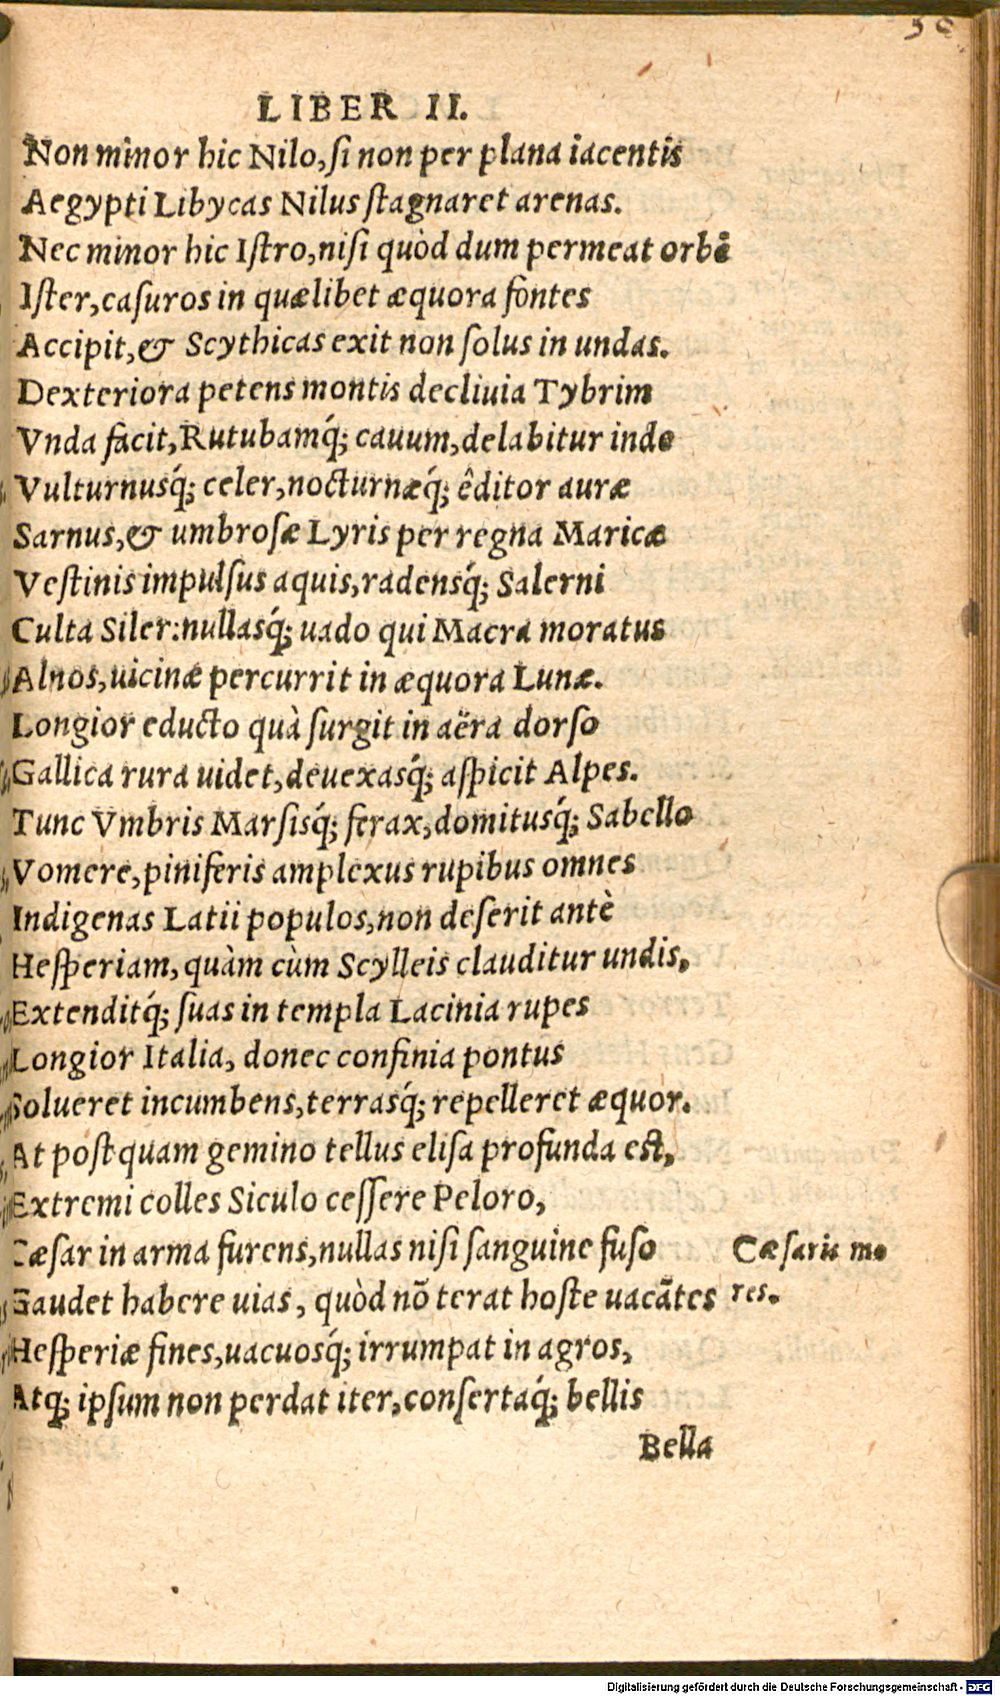 LIBER II.
Non minor hic Nilo, si non per plana iacentis
Aegypti Libycas Nilus stagnaret arenas.
Nec minor hic Istro, nisi quòd dum permeat orbē
Ister, casuros in quælibet æquora fontes
Accipit, & Scythicas exit non solus in undas.
Dexteriora petens montis decliuia Tybrim
Vnda facit, Rutubamq́; cauum, delabitur inde
Vulturnusq́; celer, nocturnæq́; êditor auræ
Sarnus, & umbrosæ Lyris per regna Maricæ
Vestinis impulsus aquis, radensq́; Salerni
Culta Siler: nullasq́; uado qui Macra moratus
Alnos, uicinæ percurrit in æquora Lunæ.
Longior educto quà surgit in aëra dorso
Gallica rura uidet, deuexasq́; aspicit Alpes.
Tunc Vmbris Marsisq́; ferax, domitusq́; Sabello
Vomere, piniferis amplexus rupibus omnes
Indigenas Latii populos, non deserit antè
Hesperiam, quàm cùm Scylleis clauditur undis,
Extenditq́; suas in templa Lacinia rupes
Longior Italia, donec confinia pontus
Solueret incumbens, terrasq́; repelleret æquor.
At postquam gemino tellus elisa profunda est,
Extremi colles Siculo cessere Peloro,
Cæsar in arma furens, nullas nisi sanguine fuso
Gaudet habere uias, quòd nō terat hoste uacātes
Hesperiæ fines, uacuosq́; irrumpat in agros,
Atq; ipsum non perdat iter, consertaq́; bellis
Bella
Cæsaris mo
res.
Digitalisierung gefördert durch die Deutsche Forschungsgemeinschaft - DFG